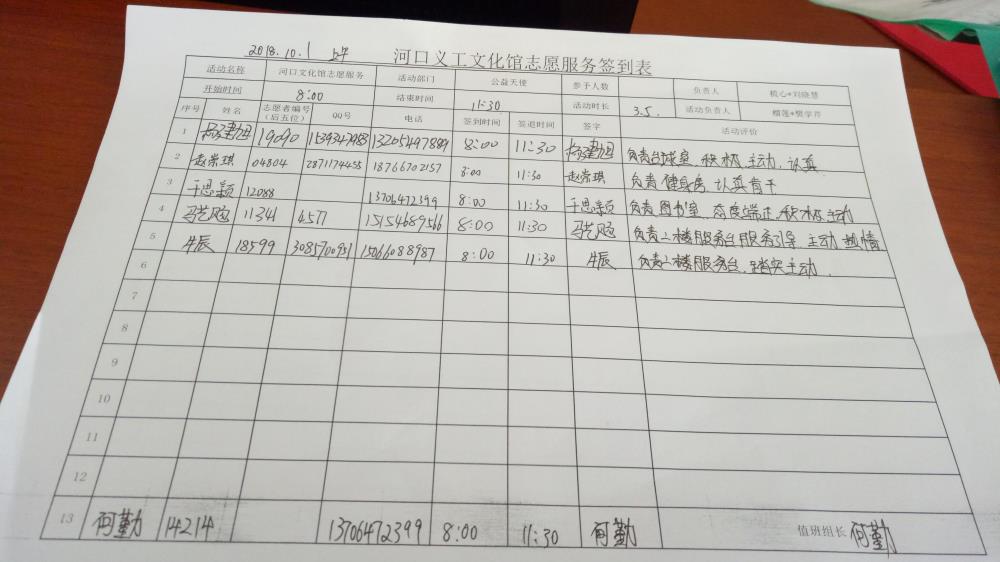 2018.10.1 上午 河口义工文化馆志愿服务签到表
活动名称 河口文化馆志愿服务 活动部门 公益天使 参予人数 负责人 梳心+刘晓慧
开始时间 8:00 结束时间 11:30 活动时长 3.5. 活动负责人 榴莲+樊学芹
序号 姓名 志愿者编号(后五位) QQ号 电话 签到时间 签退时间 签字 活动评价
1 杨建旭 19090 1539347988 13205497889 8:00 11:30 杨建旭 负责台球室、积极、主动、认真
2 赵常琪 04804 2871174458 18766702157 8:00 11:30 赵常琪 负责健身房、认真肯干
3 于思颖 12088 13706472399 8:00 11:30 于思颖 负责图书室、态度端正、积极主动
4 11341 4577 15154687566 8:00 11:30 负责二楼服务台服务引导、主动热情
5 牛辰 18599 3085700931 15066088987 8:00 11:30 牛辰 负责二楼服务台、踏实主动.
6
7
8
9
10
11
12
13 何勤 14214 13706472399 8:00 11:30 何勤 值班组长 何勤